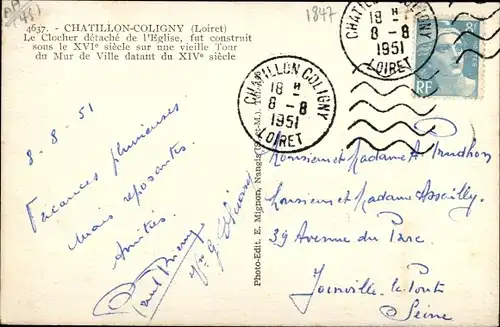 4637. - CHATILLON-COLIGNY (Loiret)
Le Clocher détaché de l'Eglise, fut construit
sous le XVIe siècle sur une vieille Tour
du Mur de Ville datant du XIVe siècle
1847
CHATILLON COLIGNY
18 H
8 - 8
1951
LOIRET
CHATILLON COLIGNY
18 H
8 - 8
1951
LOIRET
RF
8-8-51
Vacances pluvieuses
mais reposantes.
Amitiés.
Photo-Edit. E. Mignon, Nangis (S.-et-M.)
Monsieur et Madame A. Prudhon
Monsieur et Madame
39 Avenue du Parc
Joinville le Pont
Seine